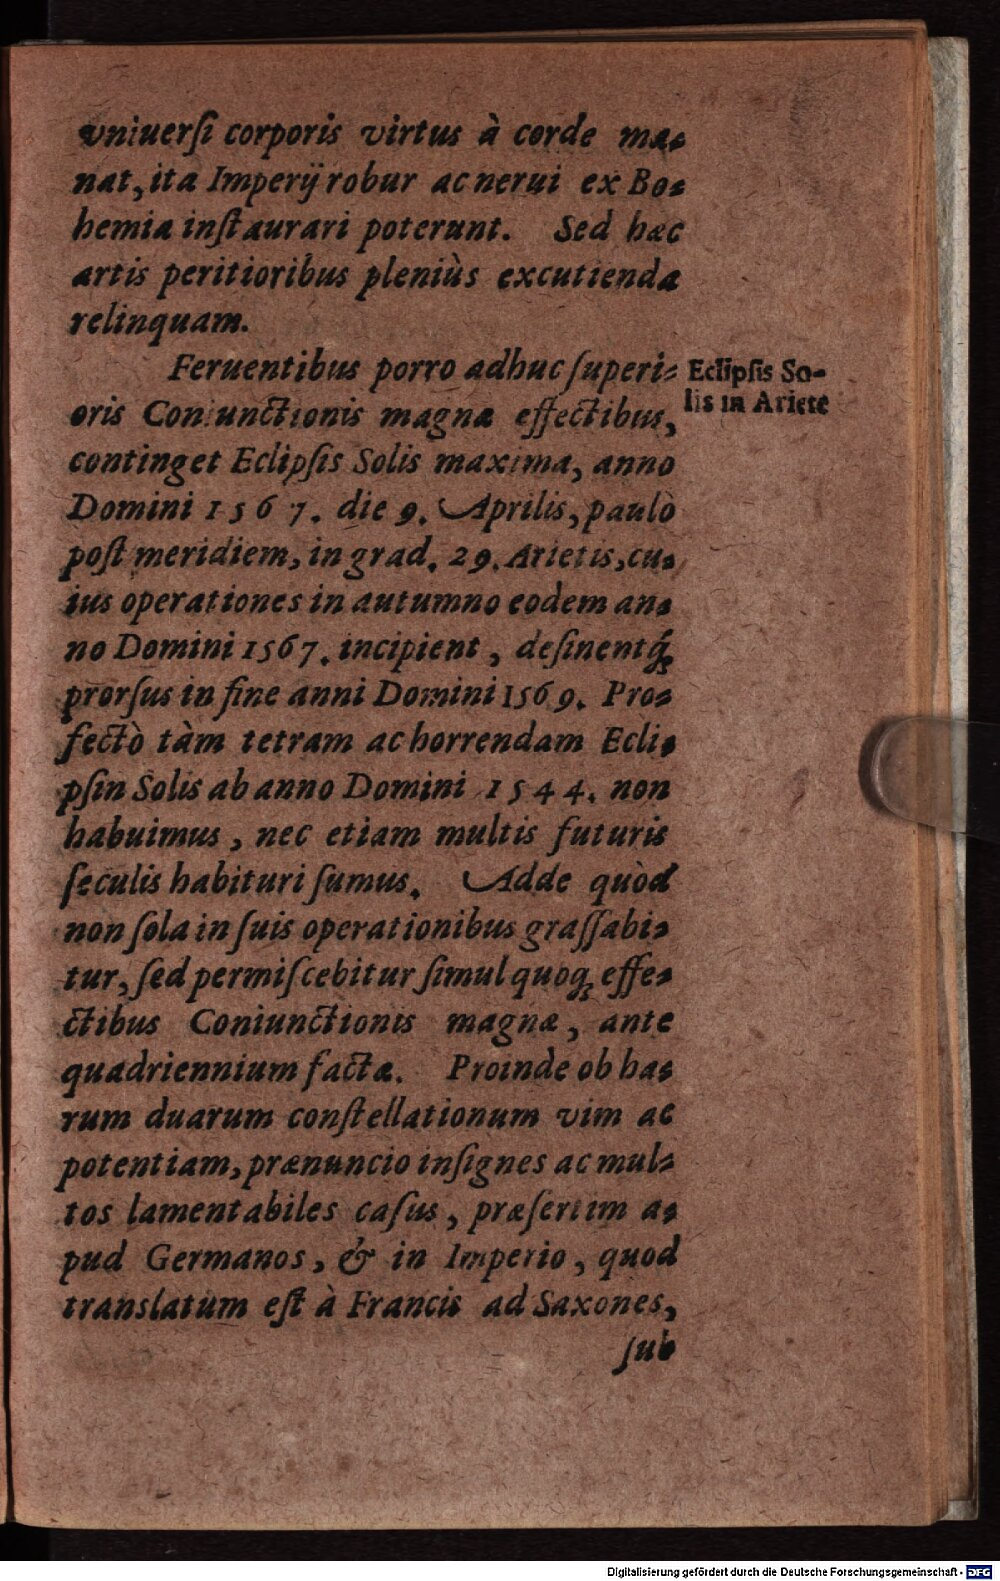 vniuerſi corporis virtus à corde ma-
nat, ita Imperij robur ac nerui ex Bo-
hemia inſtaurari poterunt. Sed hæc
artis peritioribus pleniùs excutienda
relinquam.
Feruentibus porro adhuc ſuperi-
oris Coniunctionis magnæ effectibus,
continget Eclipſis Solis maxima, anno
Domini 1567. die 9. Aprilis, paulò
poſt meridiem, in grad. 29. Arietis, cu-
ius operationes in autumno eodem an-
no Domini 1567. incipient, deſinentq́;
prorſus in fine anni Domini 1569. Pro-
fectò tàm tetram ac horrendam Ecli-
pſin Solis ab anno Domini 1544. non
habuimus, nec etiam multis futuris
ſeculis habituri ſumus. Adde quòd
non ſola in ſuis operationibus graſſabi-
tur, ſed permiſcebitur ſimul quoq; effe-
ctibus Coniunctionis magnæ, ante
quadriennium factæ. Proinde ob ha-
rum duarum conſtellationum vim ac
potentiam, prænuncio inſignes ac mul-
tos lamentabiles caſus, præſertim a-
pud Germanos, & in Imperio, quod
translatum eſt à Francis ad Saxones,
ſub
Eclipſis So-
lis in Ariete
Digitalisierung gefördert durch die Deutsche Forschungsgemeinschaft - DFG